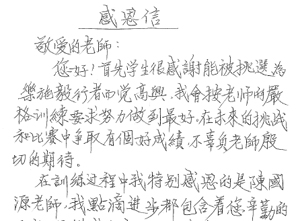 感恩信
敬爱的老师:
您好!首先学生很感謝能被挑選為
樂施毅行者而觉高興,我會按老师的嚴
格訓練要求努力做到最好,在未來的挑戰
和比賽中爭取有個好成績,不辜負老師殷
切的期待。
在訓練过程中我特别感恩的是陳國
源老師,我點滴进步都包含着您辛勤的